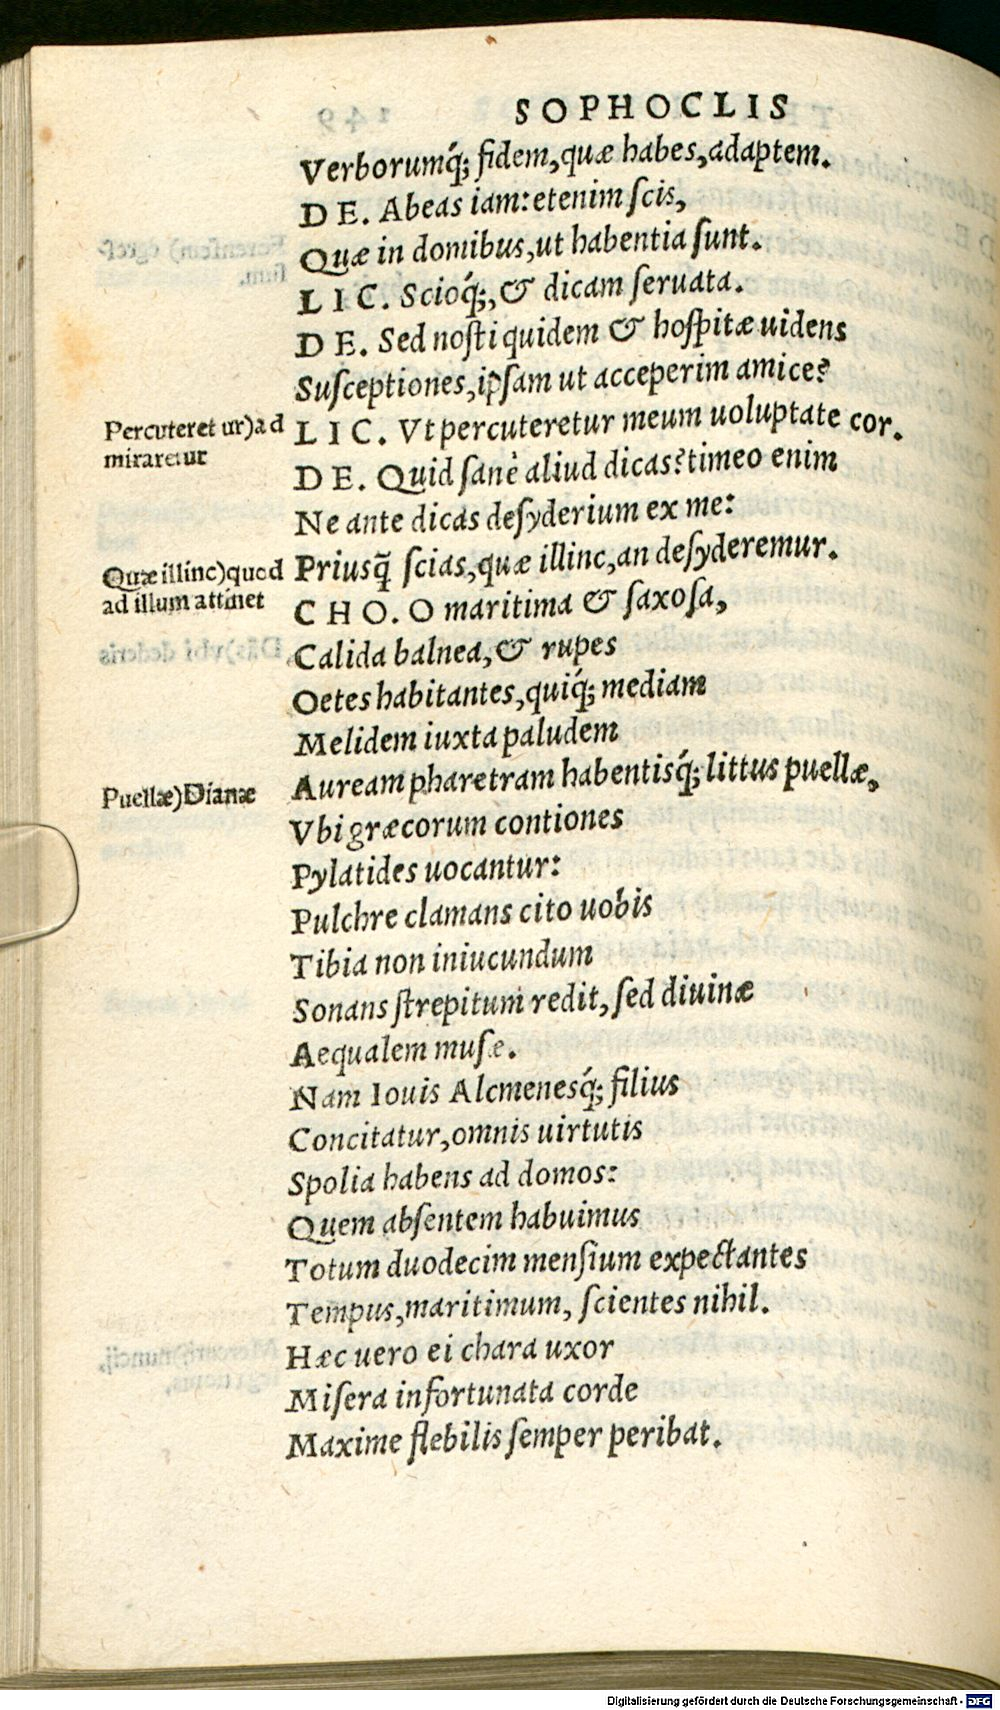 SOPHOCLIS
Verborumq́; fidem, quæ habes, adaptem.
DE. Abeas iam: etenim ſcis,
Quæ in domibus, ut habentia ſunt.
LIC. Scioq́;, & dicam ſeruata.
DE. Sed noſti quidem & hoſpitæ uidens
Suſceptiones, ipſam ut acceperim amice?
Percuteret ur) ad
miraretur
LIC. Vt percuteretur meum uoluptate cor.
DE. Quid ſanè aliud dicas? timeo enim
Ne ante dicas deſyderium ex me:
Quæ illinc) quod
ad illum attinet
Priusq̃ ſcias, quæ illinc, an deſyderemur.
CHO. O maritima & ſaxoſa,
Calida balnea, & rupes
Oetes habitantes, quiq́; mediam
Melidem iuxta paludem
Puellæ) Dianæ
Auream pharetram habentisq́; littus puellæ,
Vbi græcorum contiones
Pylatides uocantur:
Pulchre clamans cito uobis
Tibia non iniucundum
Sonans ſtrepitum redit, ſed diuinæ
Aequalem muſæ.
Nam Iouis Alcmenesq́; filius
Concitatur, omnis uirtutis
Spolia habens ad domos:
Quem abſentem habuimus
Totum duodecim menſium expectantes
Tempus, maritimum, ſcientes nihil.
Hæc uero ei chara uxor
Miſera infortunata corde
Maxime flebilis ſemper peribat.
Digitalisierung gefördert durch die Deutsche Forschungsgemeinschaft - DFG